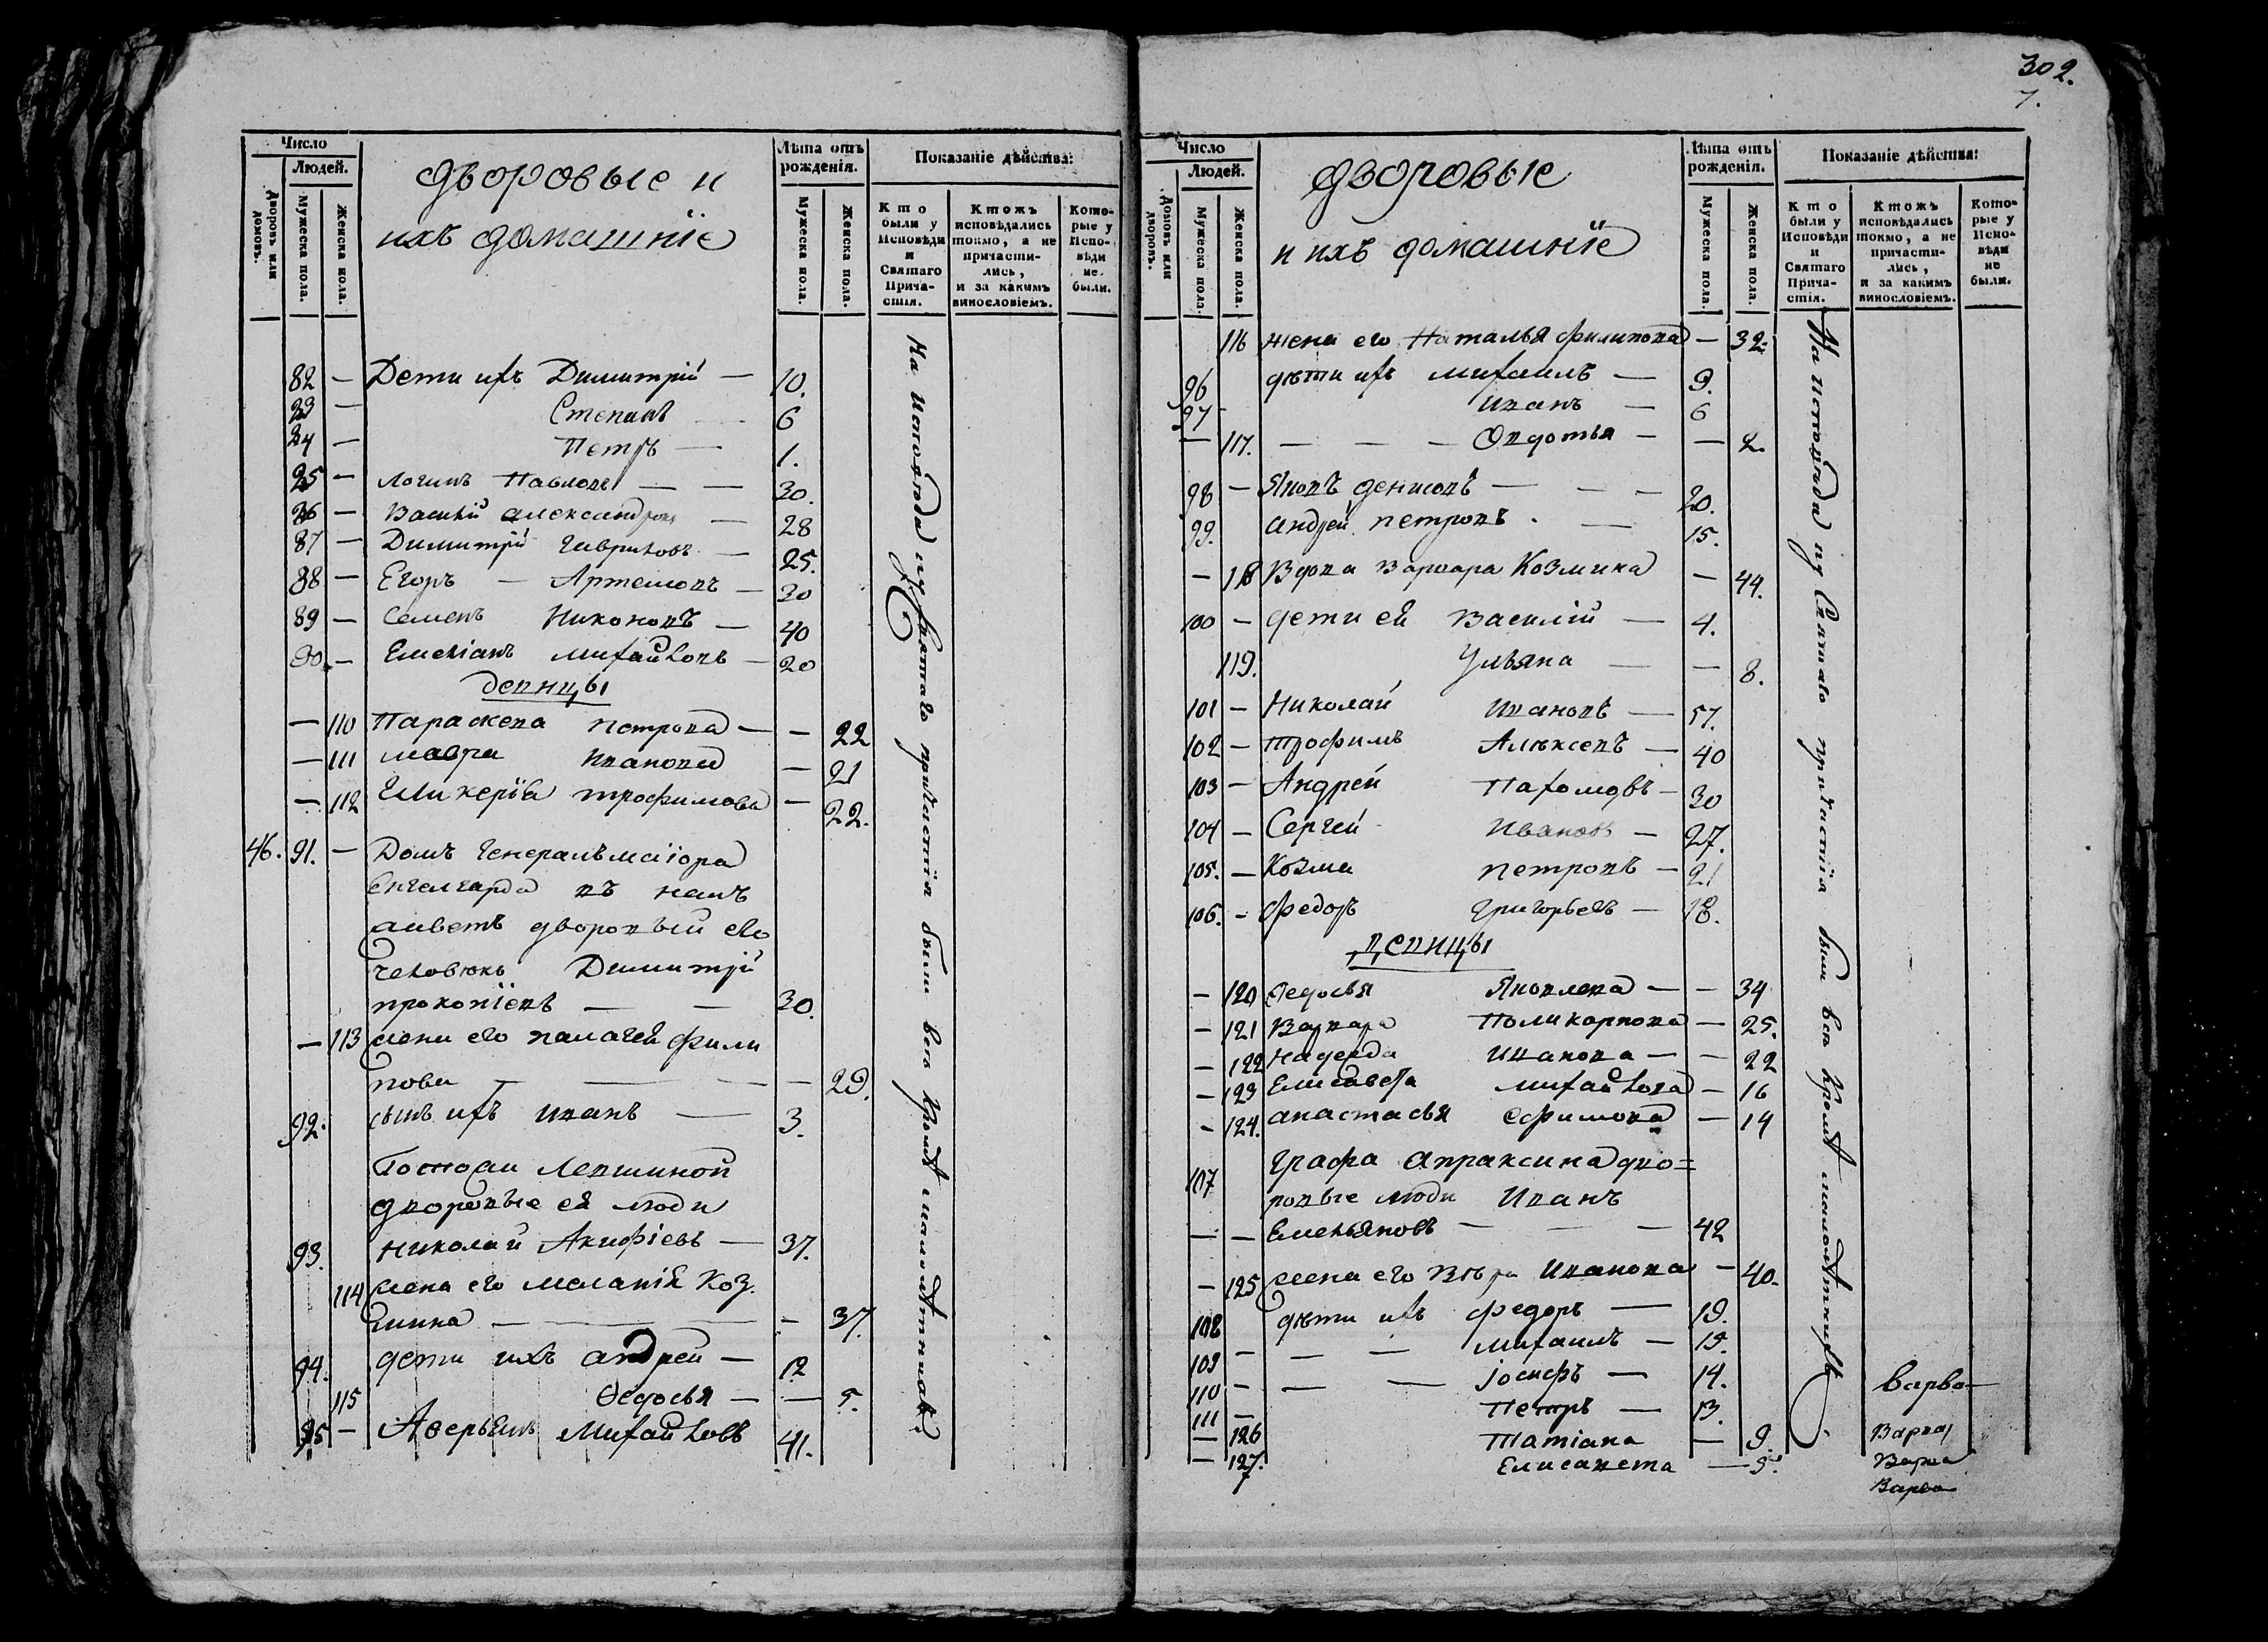 Число
Людей.
Дворовъ или домовъ.
Мужеска пола.
Женска пола.
дворовые и
ихъ домашніе
Лѣта отъ рожденія.
Мужеска пола.
Женска пола.
Показаніе дѣйства:
Кто были у Исповѣди и Святаго Причастія.
Ктожъ исповѣдались токмо, а не причастились, и за какимъ винословіемъ.
Которые у Исповѣди не были.
82 — Дети ихъ Димитрій — 10.
83 — Степанъ 6
84 — Петръ — 1.
85 — Логинъ Павловъ — — 30.
86 — Василій александровъ — 28
87 — Димитрій Гавриловъ — 25.
88 — Егоръ — Артемовъ — 30
89 — Семенъ Никоновъ — 40
90. — Емеліанъ Михайловъ — 20
девицы
— 110 Параскева Петрова — — 22
— 111 мавра Иванова — 21
— 112 Гликерія трофимова — 22.
46. 91. — Домъ Генералъ маіора
Енгелгарда въ немъ
живетъ дворовый его
человѣкъ Димитрій
прокопіевъ — — 30.
— 113 жена его пелагея фили
пова — — — — 29.
92. сынъ ихъ Иванъ — 3.
Госпожи Левшиной
дворовые ея люди
93. Николай Акифіевъ — 37.
114 жена его меланія Коз
мина — — — 37.
94. дети ихъ андрей — 12
115 Ѳедосья — — 5.
95 — Аверьянъ Михайловъ 41.
На исповѣди и у святаго причастія были всѣ кромѣ малолѣтнихъ.
302.
7.
Число
Людей.
Домовъ или дворовъ.
Мужеска пола.
Женска пола.
дворовые
и ихъ домашніе
Лѣта отъ рожденія.
Мужеска пола.
Женска пола.
Показаніе дѣйствія:
Кто были у Исповѣди и Святаго Причастія.
Ктожъ исповѣдались токмо, а не причастились, и за какимъ винословіемъ.
Которые у Исповѣди не были.
116 жена его Наталья филипова — 32.
96 дѣти ихъ михаилъ — 9.
97 Иванъ — 6
— 117. — — — Овдотья — — 2.
98 — Яковъ денисовъ — — — 20.
99. андрей петровъ. — 15.
— 118 Вдова Варвара Козмина — 44.
100 — дети ея Василій — 4.
119. Ульяна — — 8.
101 — Николай Ивановъ — 57.
102 — трофимъ Алѣксевъ — 40
103 — Андрей Пахомовъ — 30
104 — Сергей Ивановъ — 27.
105. — Козма петровъ — 21
106. — федоръ Григорьевъ — 18.
девицы
— 120 Федосья Яковлева — — 34
— 121 Варвара Поликарпова — 25.
— 122 Надежда Иванова — — 22
— 123 Елисавета михайлова — 16
— 124. анастасья Ефимова — 14
107 Графа апраксина дво=
ровые люди Иванъ
— — Емельяновъ — — — 42
— 125 жена его Вѣра Иванова — 40.
108 дѣти ихъ федоръ — 19.
109 — — — михаилъ — 15.
110 — — — Іосифъ — 14.
111 — Петръ — 13.
— 126 Татіана — 9.
— 127. Елисавета — 5.
На исповѣди и у Святаго причастія были всѣ кромѣ малолѣтнихъ
варва
Варва
Варва
Варва